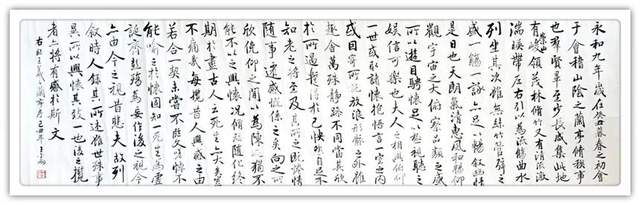 永和九年歲在癸丑暮春之初會
于會稽山陰之蘭亭修稧事
也群賢畢至少長咸集此地
有崇山峻領茂林修竹又有清流激
湍暎帶左右引以為流觴曲水
列坐其次雖無絲竹管弦之
盛一觴一詠亦足以暢敘幽情
是日也天朗氣清惠風和暢仰
觀宇宙之大俯察品類之盛
所以遊目騁懷足以極視聽之
娛信可樂也夫人之相與俯仰
一世或取諸懷抱悟言一室之內
或因寄所託放浪形骸之外雖
趣舍萬殊靜躁不同當其欣
於所遇暫得於己快然自足不
知老之將至及其所之既惓情
隨事遷感慨係之矣向之所
欣俛仰之間以為陳迹猶不
能不以之興懷況修短隨化終
期於盡古人云死生亦大矣豈
不痛哉每攬昔人興感之由
若合一契未嘗不臨文嗟悼不
能喻之於懷固知一死生為虛
誕齊彭殤為妄作後之視今
亦由今之視昔悲夫故列
敘時人錄其所述雖世殊事
異所以興懷其致一也後之攬
者亦將有感於斯文
王羲之蘭亭序